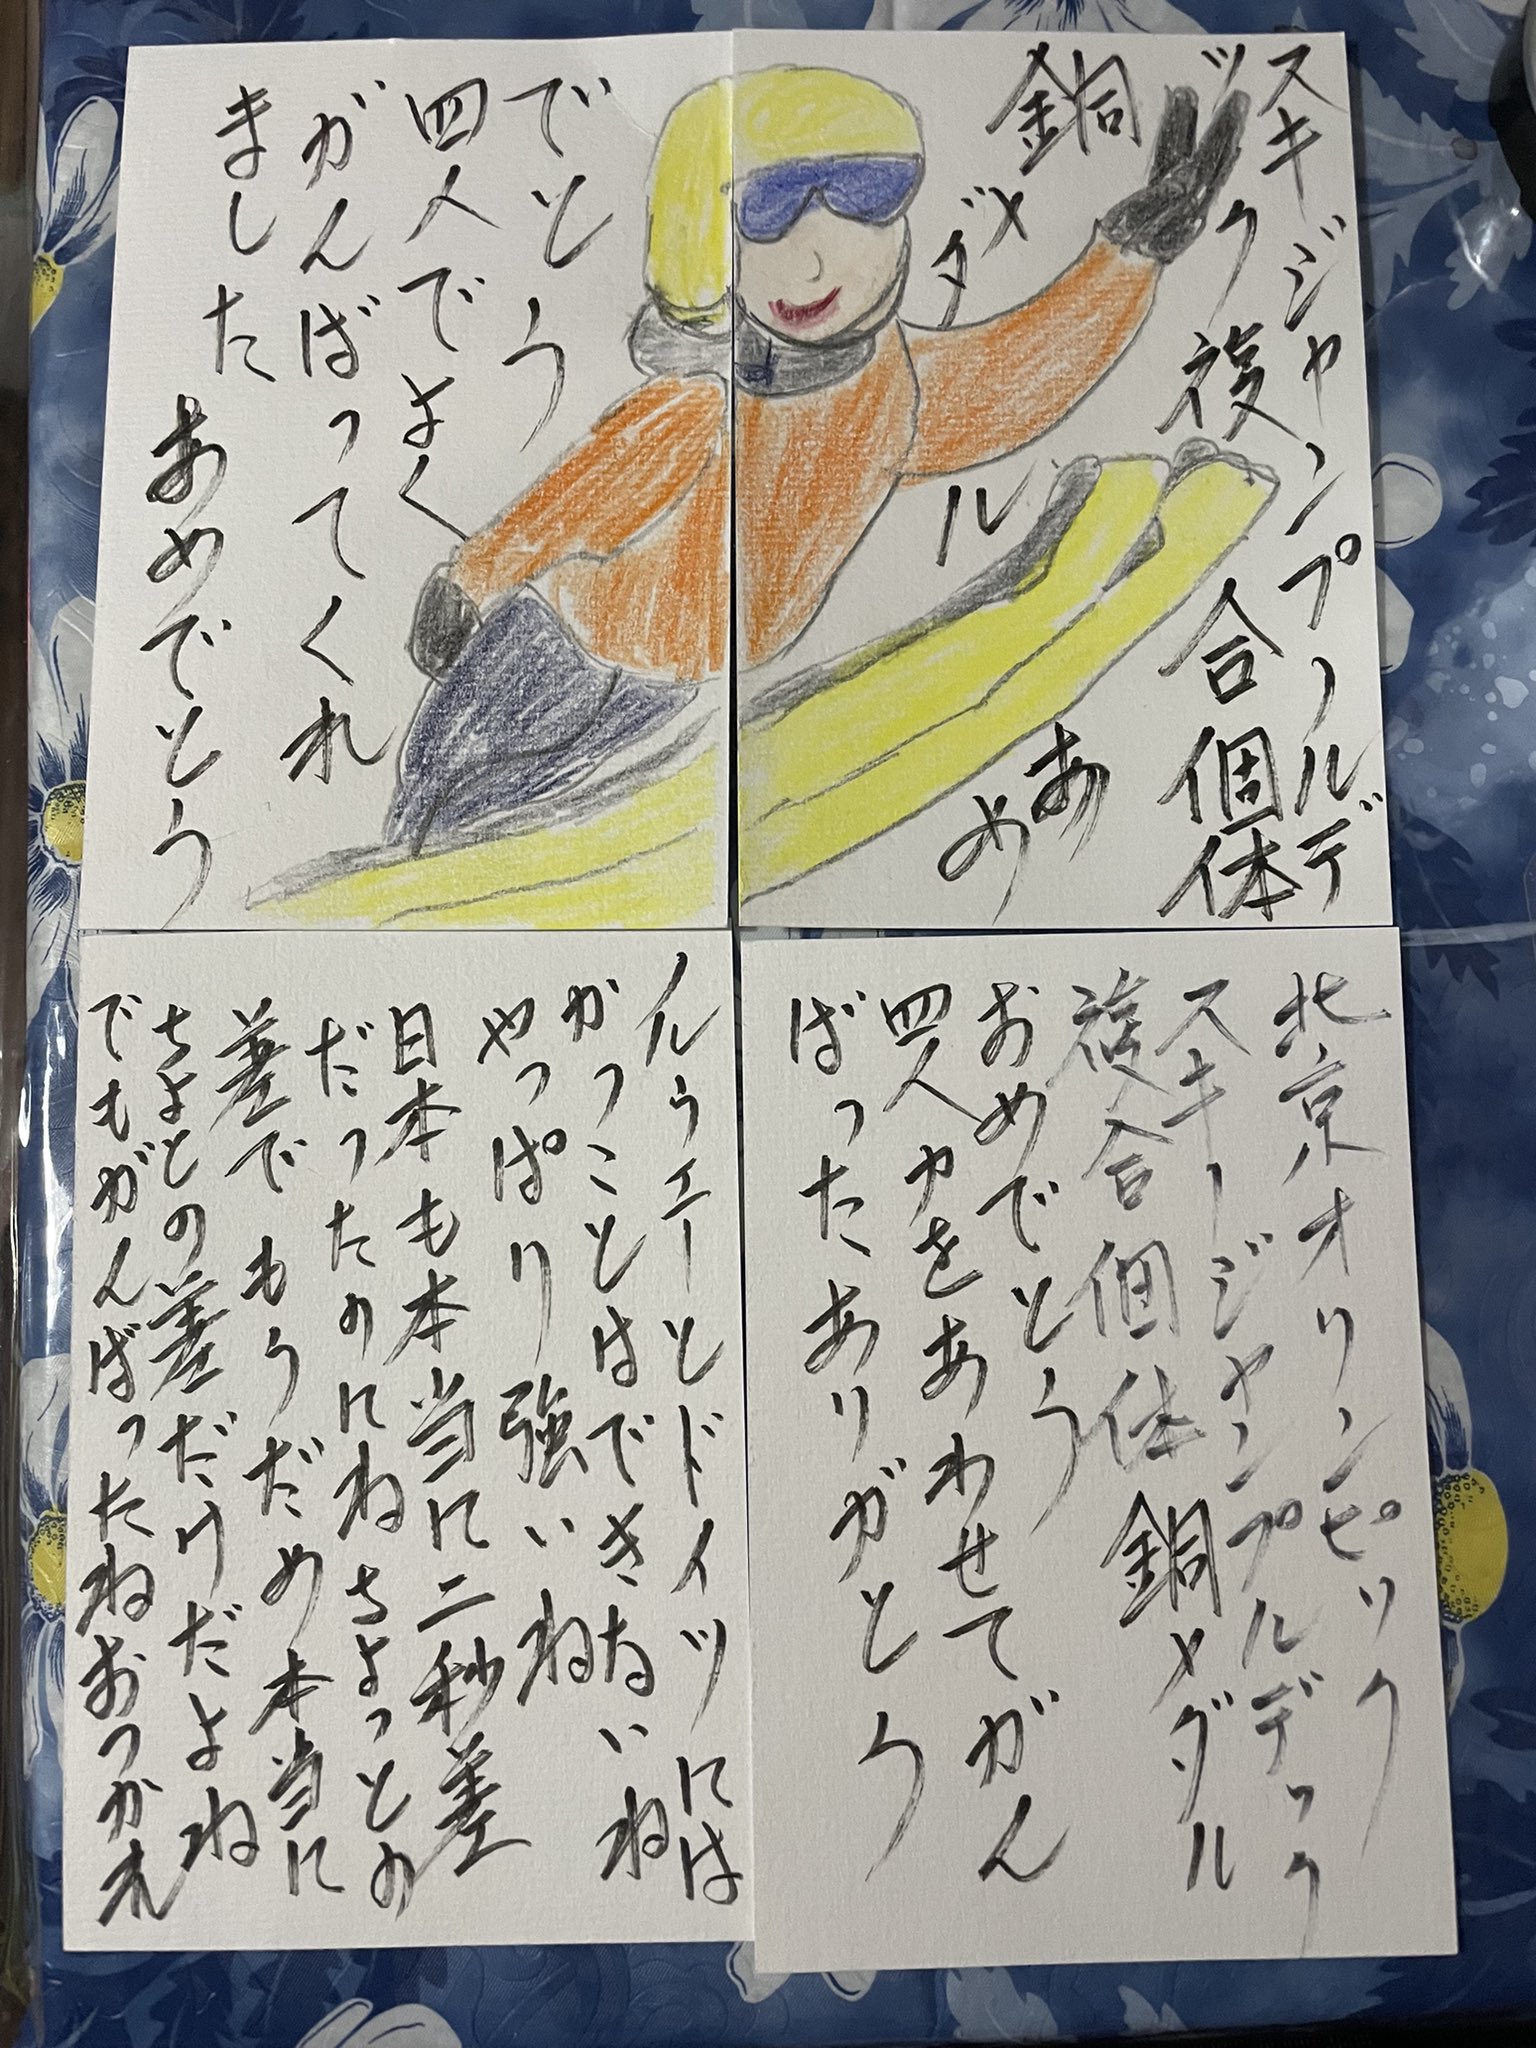 スキージャンプノルデ
ック複合個体
銅メダル
あめ
でとう
四人でよく
がんばってくれ
ました
あめでとう
北京オリンピック
スキージャンプルデック
複合個体銅メダル
おめでとう
四人力をあわせてがん
ばったありがとう
ノルウエーとドイツには
かつことはできないね
やっぱり強いね
日本も本当に二秒差
だったのにねちょっとの
差でもうだめ本当に
ちょとの差だけだよね
でもがんばったねおつかれ